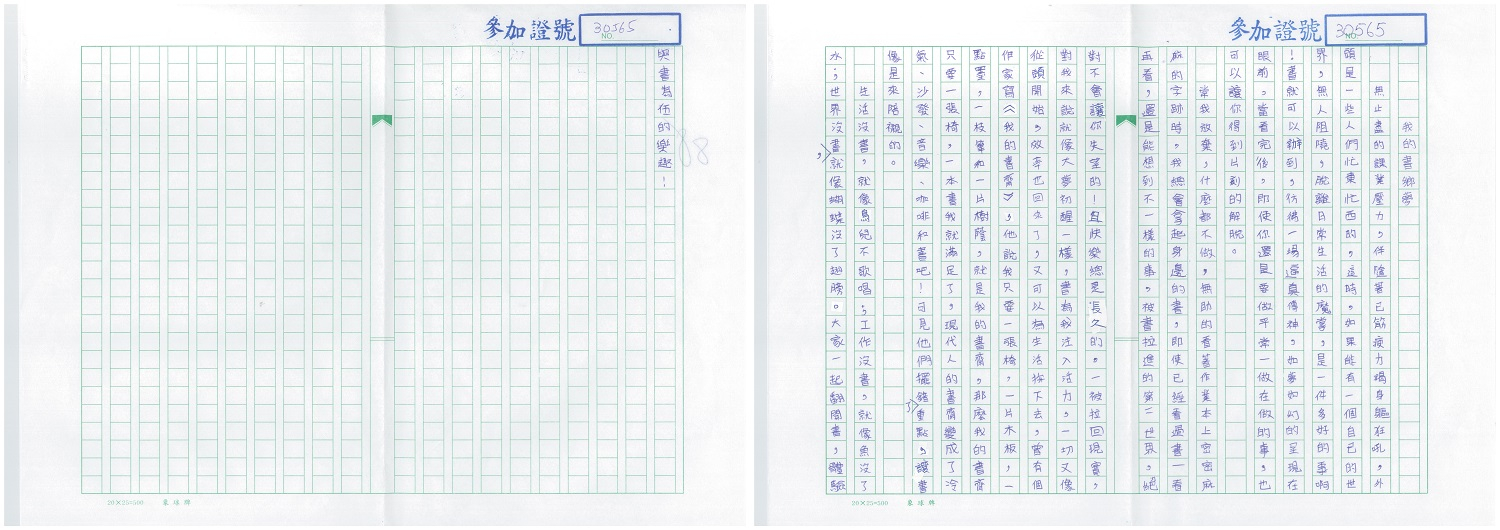 參加證號 NO. 30565
我的書鄉夢
無止盡的課業壓力，伴隨著已筋疲力竭身軀在吼，外
頭是一些人們忙東忙西的，這時，如果能有一個自己的世
界，無人阻撓，脫離日常生活的魔掌，是一件多好的事啊
！書就可以辦到，彷彿一場逼真傳神，如夢如幻的呈現在
眼前。當看完後，即使你還是要做平常一做在做的事，也
可以讓你得到片刻的解脫。
當我放棄，什麼都不做，無助的看著作業本上密密麻
麻的字跡時，我總會拿起身邊的書，即使已經看過書一看
再看，還是能想到不一樣的事，被書拉進的第二世界，絕
對不會讓你失望的！且快樂總是長久的。一被拉回現實，
對我來說就像大夢初醒一樣，書為我注入活力，一切又像
從頭開始，效率也回來了，又可以為生活拚下去，曾有個
作家寫《我的書齋》，他說我只要一張椅，一片木板，一
點墨，一枝筆和一片樹蔭，就是我的書齋，那麼我的書齋
只要一張椅，一本書我就滿足了，現代人的書齋變成了冷
氣、沙發、音樂、咖啡和書吧！可見他們擺錯重點了，讓書
像是來陪襯的。
生活沒書，就像鳥兒不歌唱；工作沒書，就像魚沒了
水；世界沒書，就像蝴蝶沒了翅膀。大家一起翻開書，體驗
20×25=500
參加證號 NO. 30565
與書為伍的樂趣！
88
20×25=500